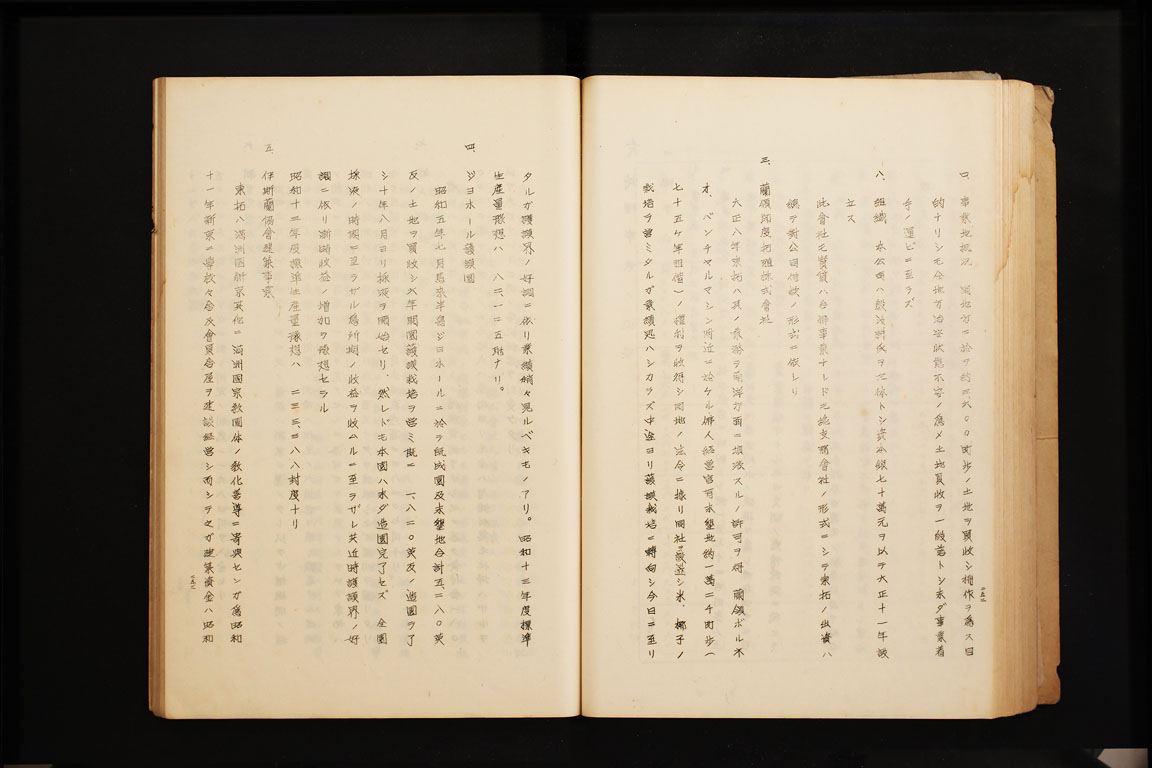 事業地概況 同地方ニ於テ約二、六〇〇町歩ノ土地ヲ買収シ棉作ヲ為ス目
的ナリシモ今地方治安状態不寧ノ為メ土地買收ヲ一段落トシ未ダ事業着
手ノ運ビニ至ラズ
八、組織 本公司ハ 氏ヲ 体トシ資本銀七十萬元ヲ以テ大正十一年設
立ス
此會社モ實質ハ合辦事業ナレドモ 支商會社ノ形式ニシテ東拓ノ出資ハ
總テ對公司付款ノ形式ニ依レリ
三、蘭領印度拓殖株式會社
大正八年東拓ハ其ノ業務ヲ南洋方面ニ擴張スルノ許可ヲ得 蘭領ボルネ
オ、バンチヤルマシン附近ニ於ケル佛人經營官有未墾地約一萬二千町歩(
七十五ケ年租借)ノ權利ヲ收得シ同地ノ法令ニ據リ同社ヲ設立シ米、椰子ノ
栽培ヲ營ミタルガ業績思ハシカラズ中途ヨリ護謨栽培ニ轉向シ今日ニ至リ
タルガ護謨界ノ好調ニ依リ業績稍々見ルベキモノアリ。昭和十三年度標準
生産量豫想ハ 八二、一二五 ナリ。
四、ジヨホール護謨園
昭和五年七月馬來半島ジヨホールニ於テ既成園及未墾地合計五、二八〇英
反ノ土地ヲ買收シ六年間園護謨栽培ヲ營ミ既ニ 一、八二〇英反ノ造園ヲ了
シ十年八月ヨリ採液ヲ開始セリ、然レトモ本園ハ未ダ造園完了セズ 全園
採液ノ時期ニ至ラザル為所期ノ收益ヲ收ムルニ至ラザレ共近時護謨界ノ好
調ニ依リ漸時收益ノ増加ヲ豫想セラル
昭和十三年度標準生産量豫想ハ 二三三、二八八封度ナリ
五、伊斯蘭協會建築事業
東拓ハ満洲國併 其他ニ満洲國宗教團体ノ教化善導ニ寄與センガ為昭和
十一年新京ニ學校々舎及會員宿屋ヲ建設經營シ而シテ之ガ建築資金ハ昭和